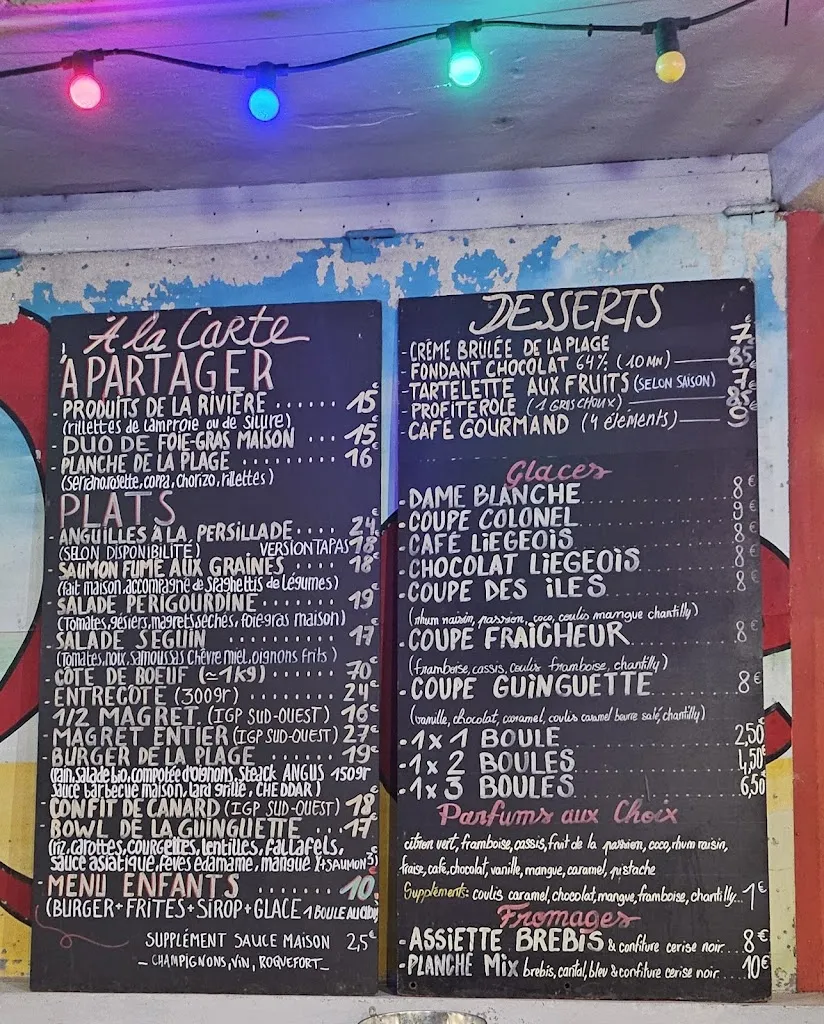 À la Carte
À PARTAGER
- PRODUITS DE LA RIVIÈRE ...... 15€
(rillettes de lamproie ou de silure)
- DUO DE FOIE-GRAS MAISON .... 15€
- PLANCHE DE LA PLAGE ........ 16€
(Serrano, rosette, coppa, chorizo, rillettes)
PLATS
- ANGUILLES À LA PERSILLADE .... 24€
(SELON DISPONIBILITÉ) VERSION TAPAS 18€
- SAUMON FUMÉ AUX GRAINES ...... 18€
(fait maison, accompagné de Spaghettis de légumes)
- SALADE PÉRIGOURDINE ........ 19€
(Tomates, gésiers, magrets séchés, foie gras maison)
- SALADE SEGUIN .......... 17€
(Tomates, noix, samoussas chèvre miel, oignons frits)
- CÔTE DE BOEUF (≃1kg) ....... 70€
- ENTRECÔTE (300gr) ......... 24€
- 1/2 MAGRET. (IGP SUD-OUEST) 16€
- MAGRET ENTIER (IGP SUD-OUEST) 27€
- BURGER DE LA PLAGE ........ 19€
(pain, salade bio, compotée d'oignons, Steack ANGUS 150gr
sauce barbecue maison, lard grillé, CHEDDAR)
- CONFIT DE CANARD (IGP SUD-OUEST) 18€
- BOWL DE LA GUINGUETTE ..... 17€
(riz, carottes, courgettes, lentilles, fallafels,
sauce asiatique, fèves edamame, mangue) (+SAUMON 3)
- MENU ENFANTS ........ 10€
(BURGER + FRITES + SIROP + GLACE 1 BOULE AU CHOIX)
SUPPLÉMENT SAUCE MAISON 2,5€
_ CHAMPIGNONS, VIN, ROQUEFORT _
DESSERTS
- CRÈME BRÛLÉE DE LA PLAGE 7€
- FONDANT CHOCOLAT 64% (10 MN) 8,5€
- TARTELETTE AUX FRUITS (SELON SAISON) 7€
- PROFITEROLE (1 GROS CHOUX) 8,5€
- CAFÉ GOURMAND (4 éléments) 9€
Glaces
- DAME BLANCHE 8€
- COUPE COLONEL 9€
- CAFÉ LIÉGEOIS 8€
- CHOCOLAT LIÉGEOIS 8€
- COUPE DES ILES 8€
(rhum raisin, passion, coco, coulis mangue chantilly)
- COUPE FRAÎCHEUR 8€
(framboise, cassis, coulis framboise, chantilly)
- COUPE GUINGUETTE 8€
(vanille, chocolat, caramel, coulis caramel beurre salé, chantilly)
- 1 x 1 BOULE 2,50€
- 1 x 2 BOULES 4,50€
- 1 x 3 BOULES 6,50€
Parfums aux Choix
citron vert, framboise, cassis, fruit de la passion, coco, rhum raisin,
fraise, café, chocolat, vanille, mangue, caramel, pistache
Suppléments: coulis caramel, chocolat, mangue, framboise, chantilly... 1€
Fromages
- ASSIETTE BREBIS & confiture cerise noir 8€
- PLANCHE MIX brebis, cantal, bleu & confiture cerise noir 10€